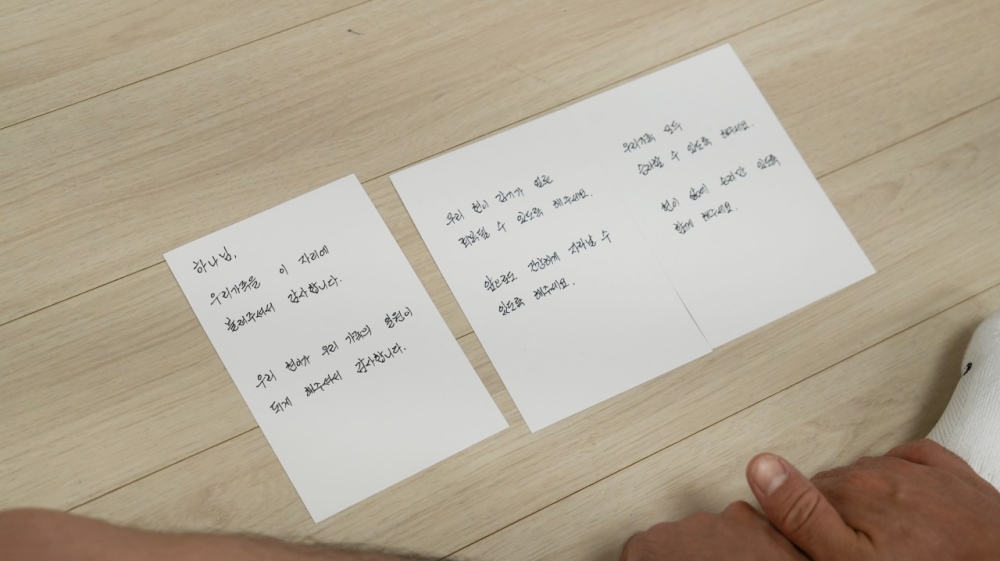 하나님,
우리가족을 이 자리에
불러주셔서 감사합니다.
우리 현이가 우리 가족의 일원이
되게 해주셔서 감사합니다.
우리 현이 감기가 얼른
회복될 수 있도록 해주세요.
앞으로도 건강하게 자라날 수
있도록 해주세요.
우리가족 모두
승리할 수 있도록 해주세요.
현이 삶에 승리만 있도록
함께 해주세요.